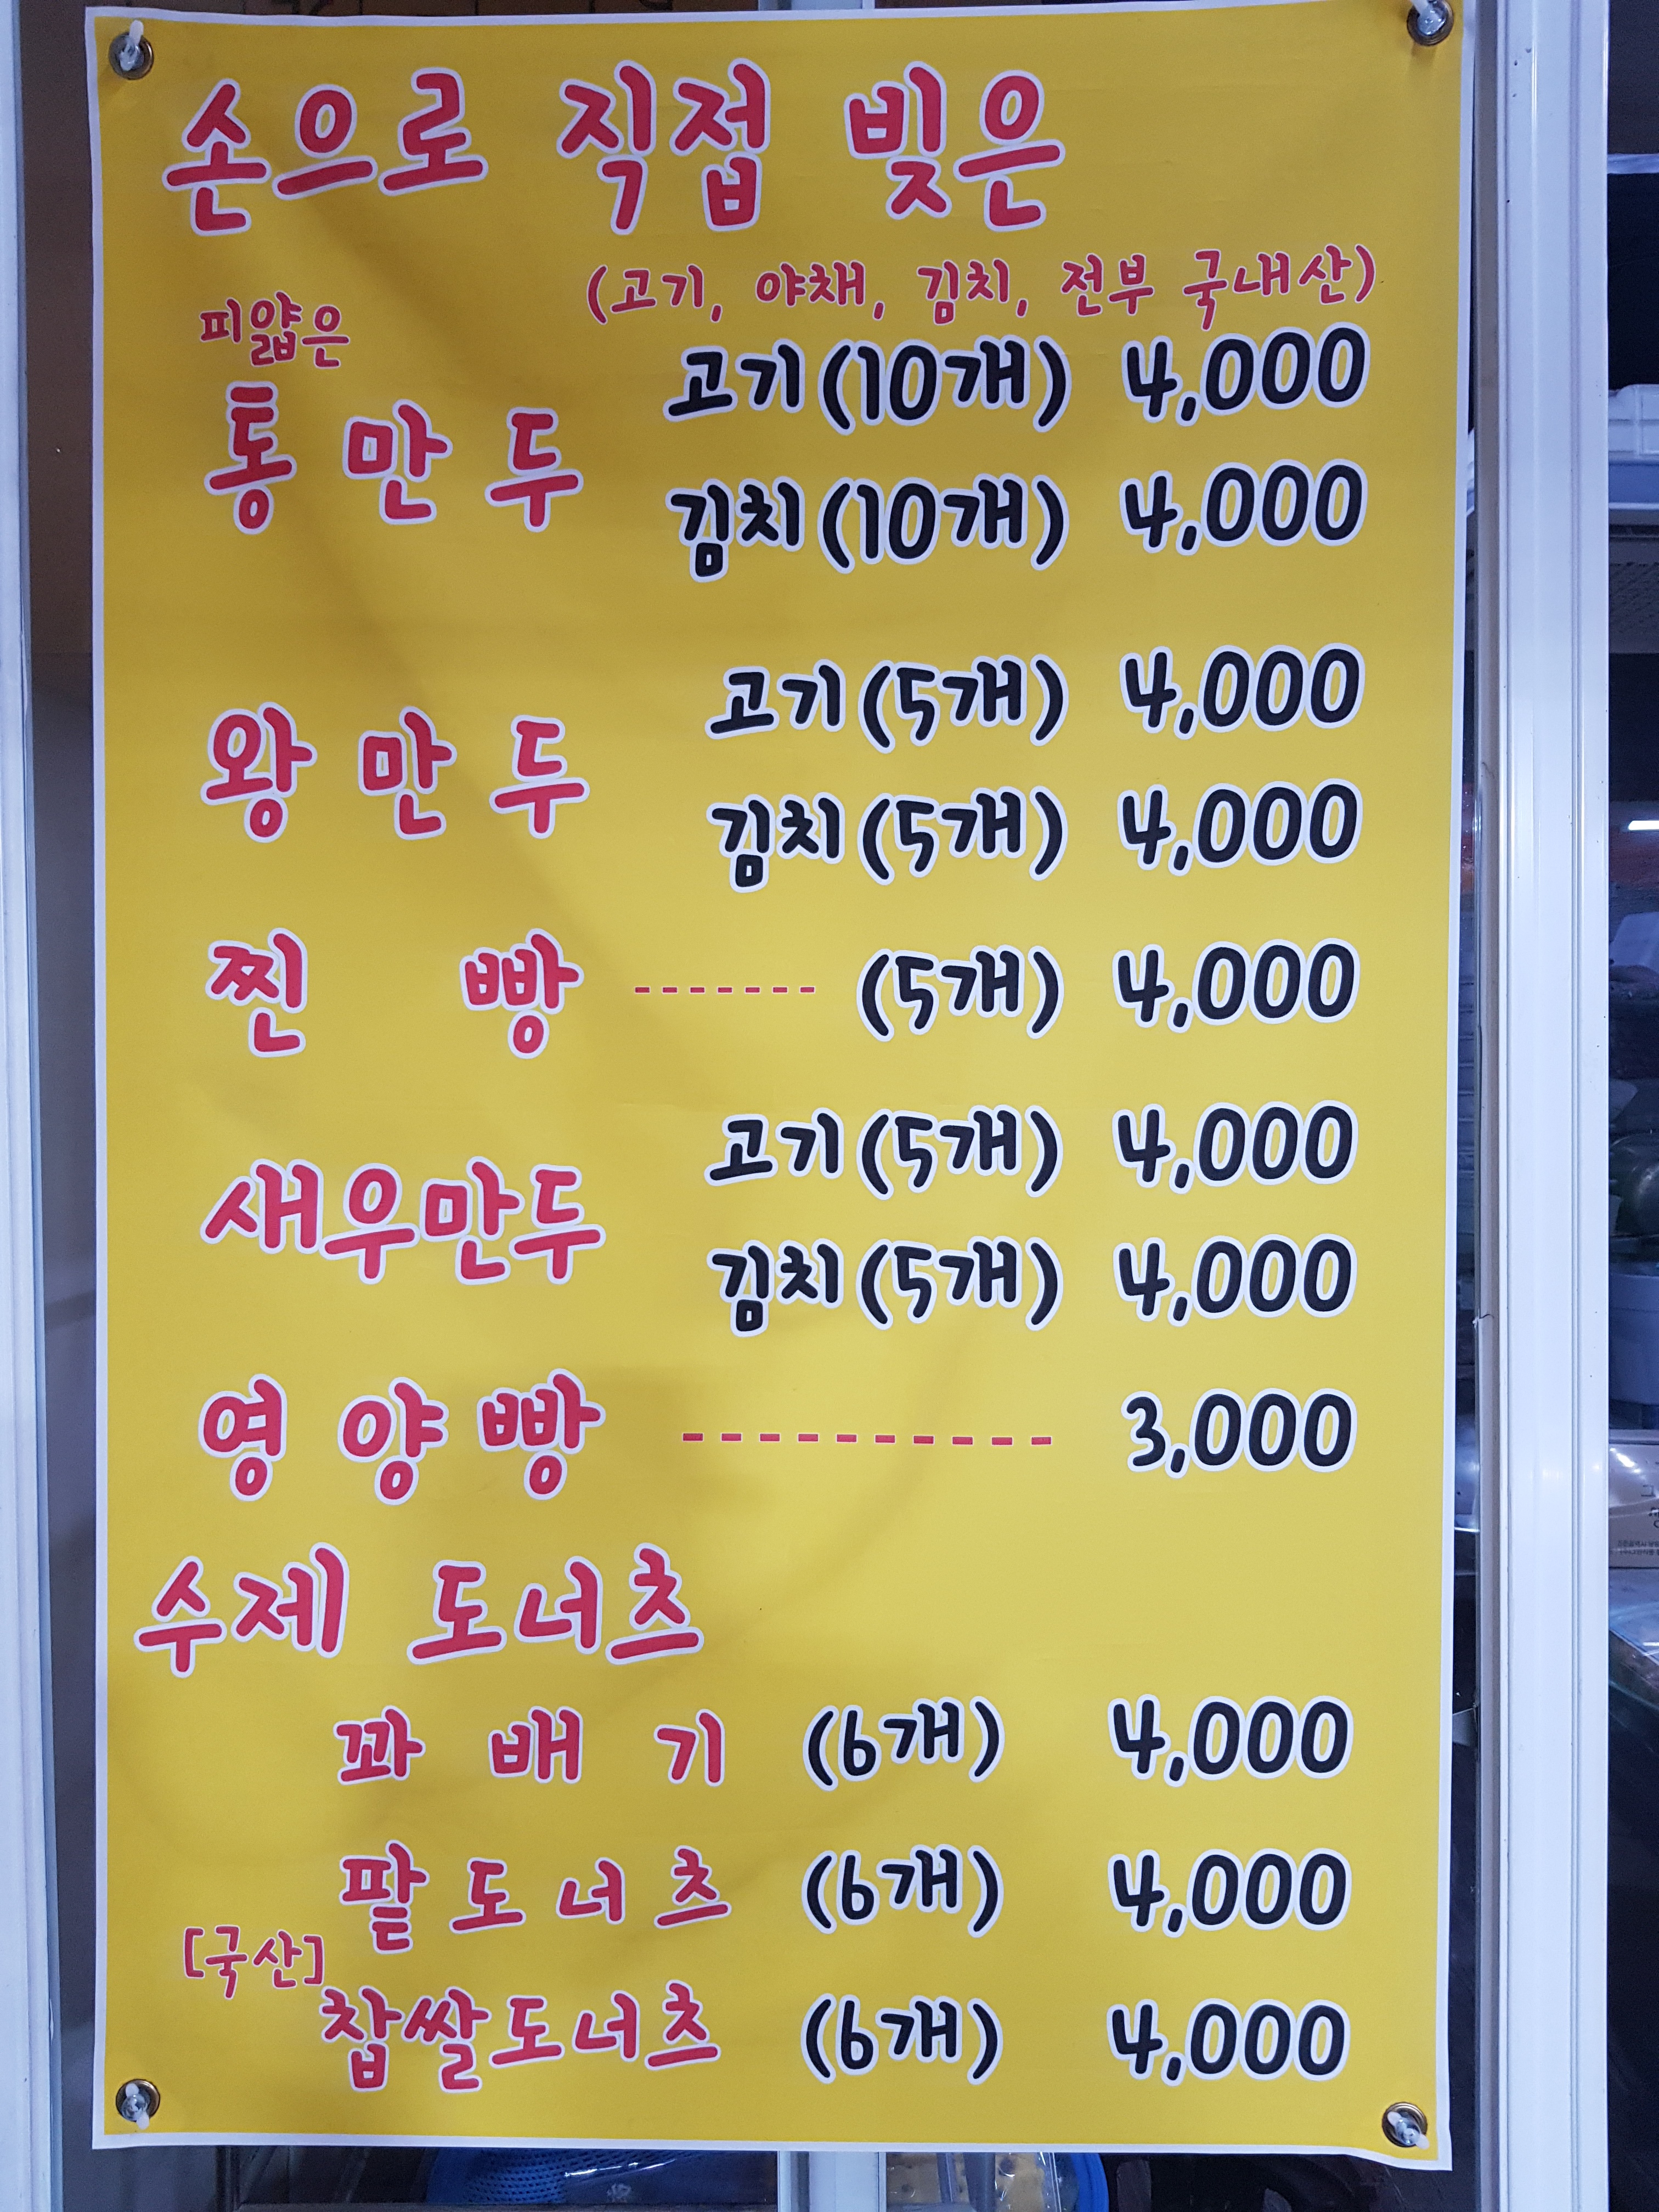 손으로 직접 빚은
(고기, 야채, 김치, 전부 국내산)
피얇은
통만두 고기(10개) 4,000
김치(10개) 4,000
왕만두 고기(5개) 4,000
김치(5개) 4,000
찐빵 ------- (5개) 4,000
새우만두 고기(5개) 4,000
김치(5개) 4,000
영양빵 ---------- 3,000
수제 도너츠
꽈배기 (6개) 4,000
팥도너츠 (6개) 4,000
[국산]
찹쌀도너츠 (6개) 4,000